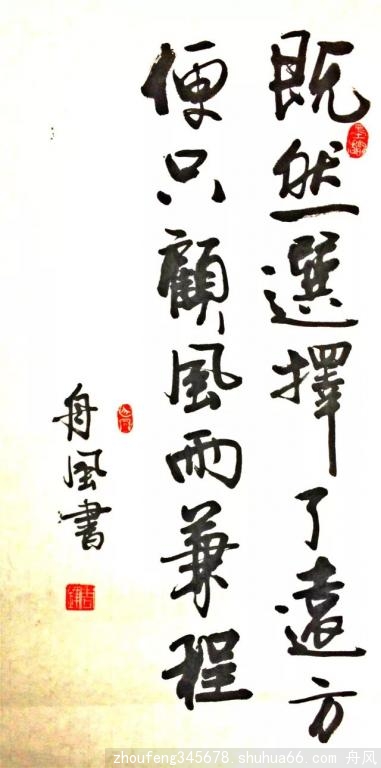 既然選擇了遠方
便只顧風雨兼程
舟風書
zhoufeng345678. shuhua66. com 舟风